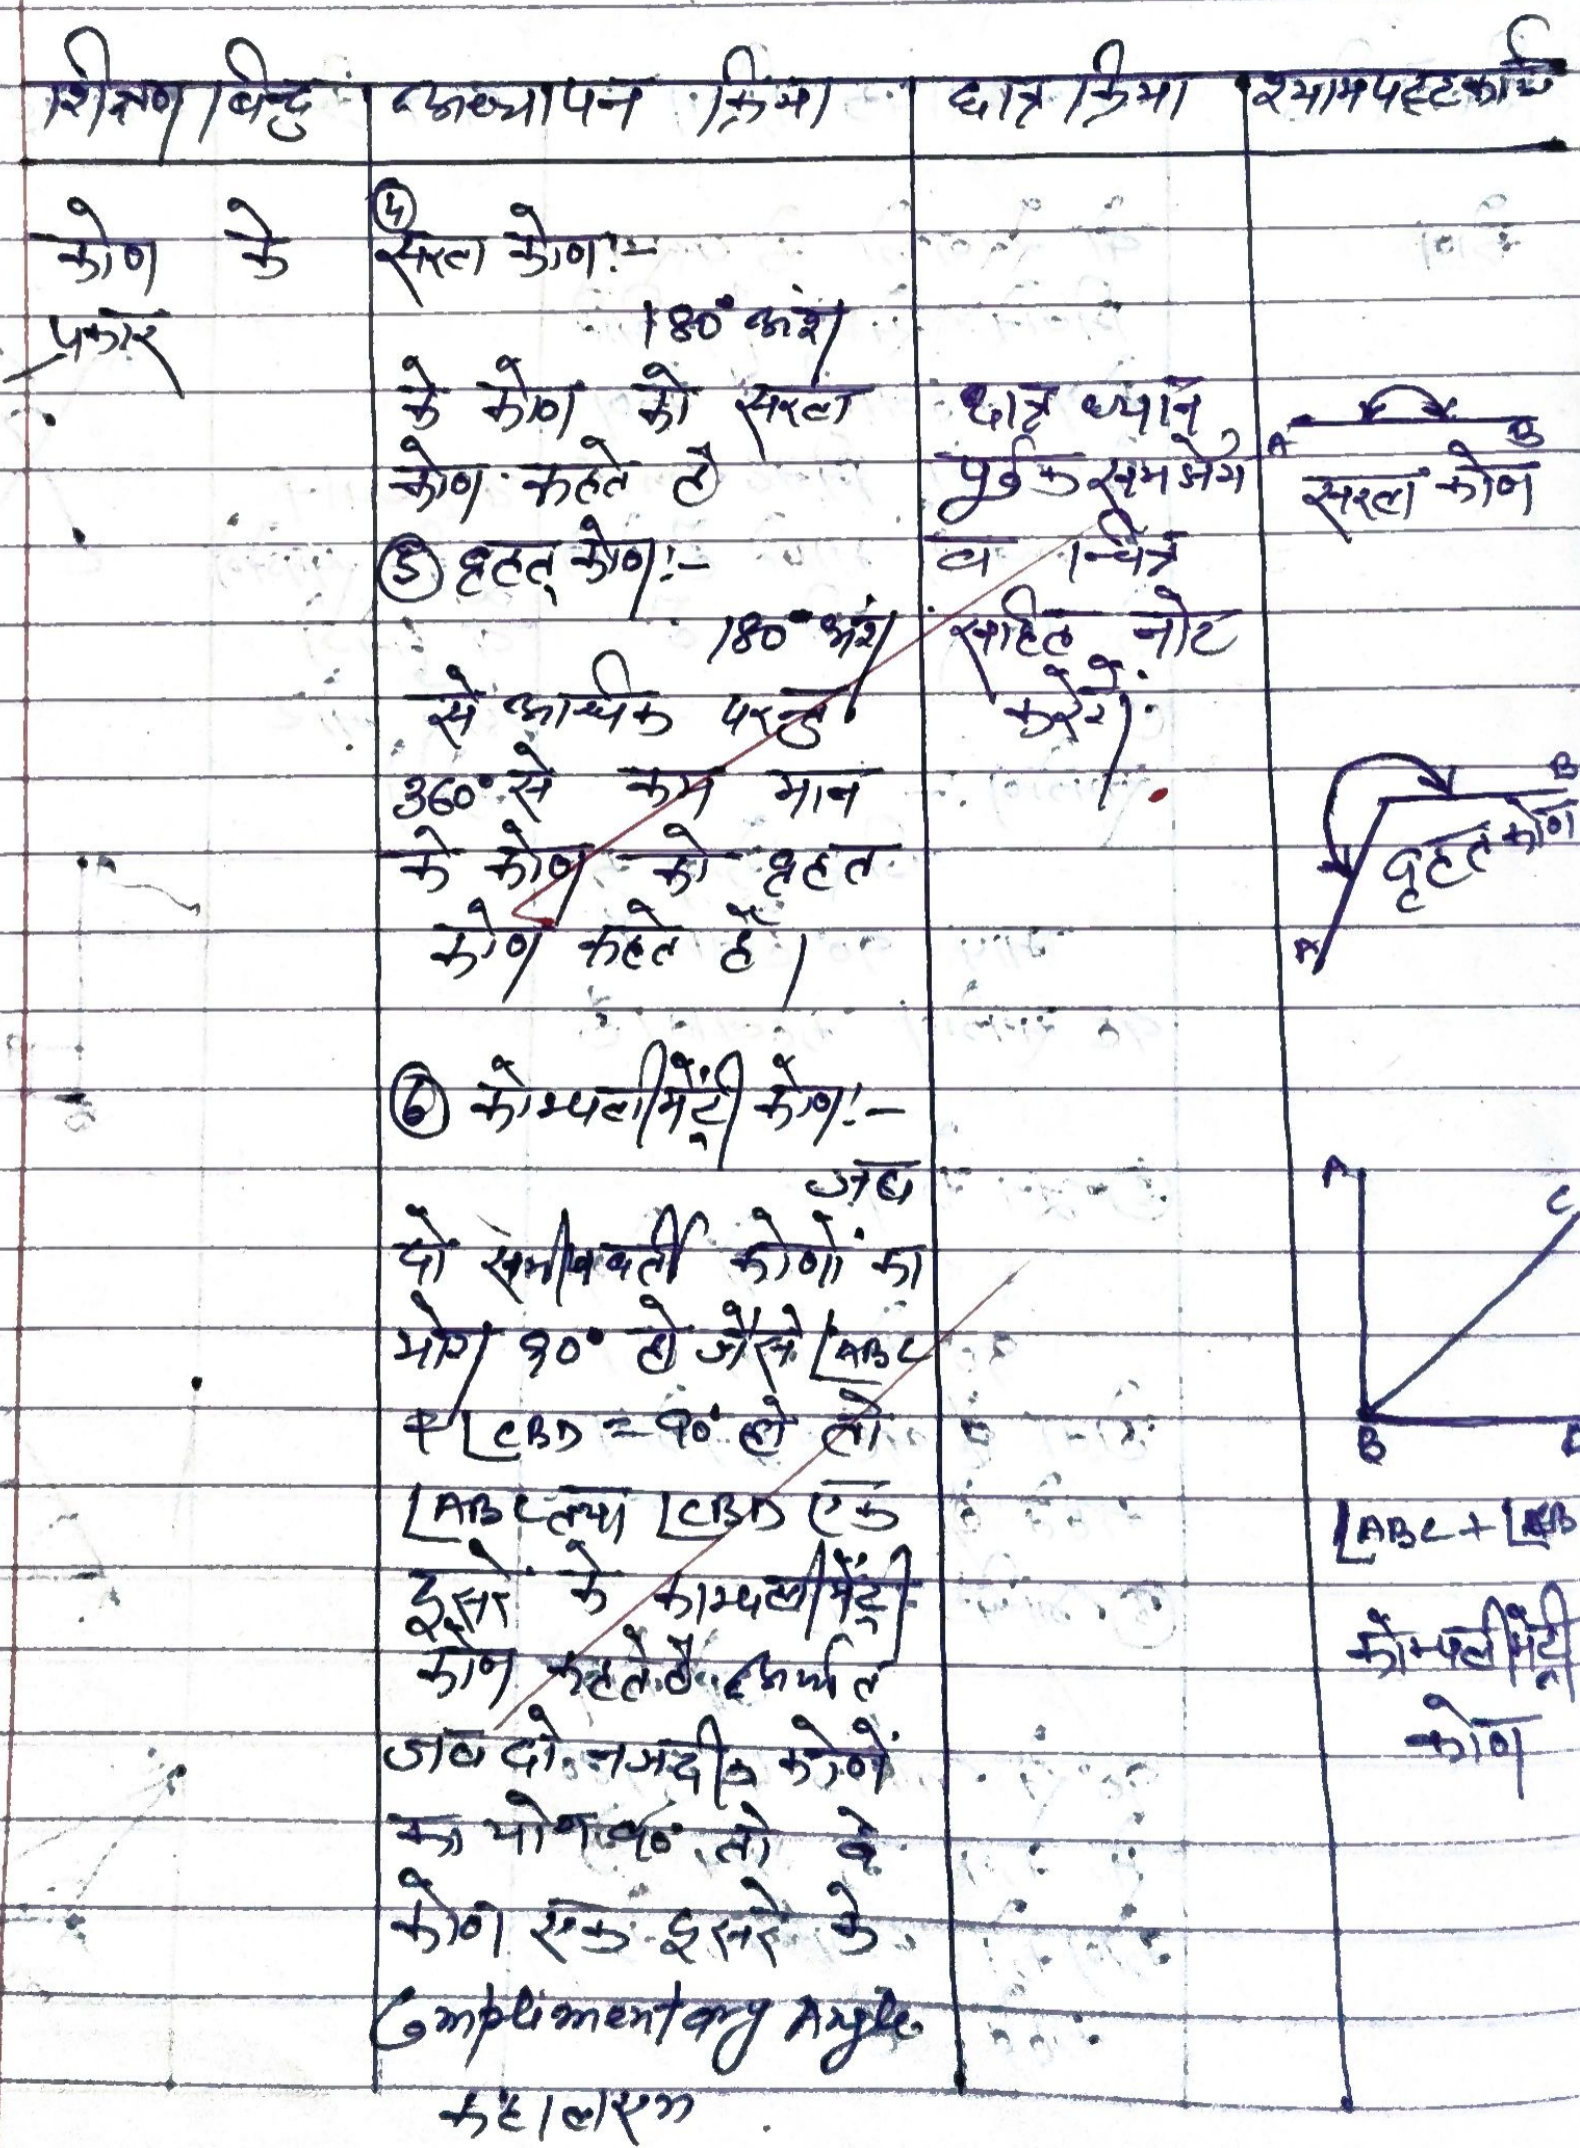 शिक्षण बिन्दु
अध्यापन क्रिया
छात्र क्रिया
श्यामपट्ट कार्य
कोण के
प्रकार
④
सरल कोण:-
180° अंश
के कोण को सरल
कोण कहते है
⑤ वृहत् कोण:-
180° अंश
से अधिक परन्तु
360° से कम मान
के कोण को वृहत
कोण कहते हैं।
⑥ कोम्पलीमेंट्री कोण:-
जब
दो समीपवर्ती कोणों का
योग 90° हो जैसे ∠ABC
+ ∠CBD = 90° हो तो
∠ABC तथा ∠CBD एक
दूसरे के काम्पलीमेंट्री
कोण कहते है अर्थात
जब दो नजदीक कोणों
का योग 90° तो वे
कोण एक दूसरे के
Complimentary Angle
छात्र ध्यान
पूर्वक समझेग
व चित्र
सहित नोट
करेगें।
A B
सरल कोण
B
वृहत कोण
A
A
C
B
∠ABC +
कोम्पलीमेंट्री
कोण